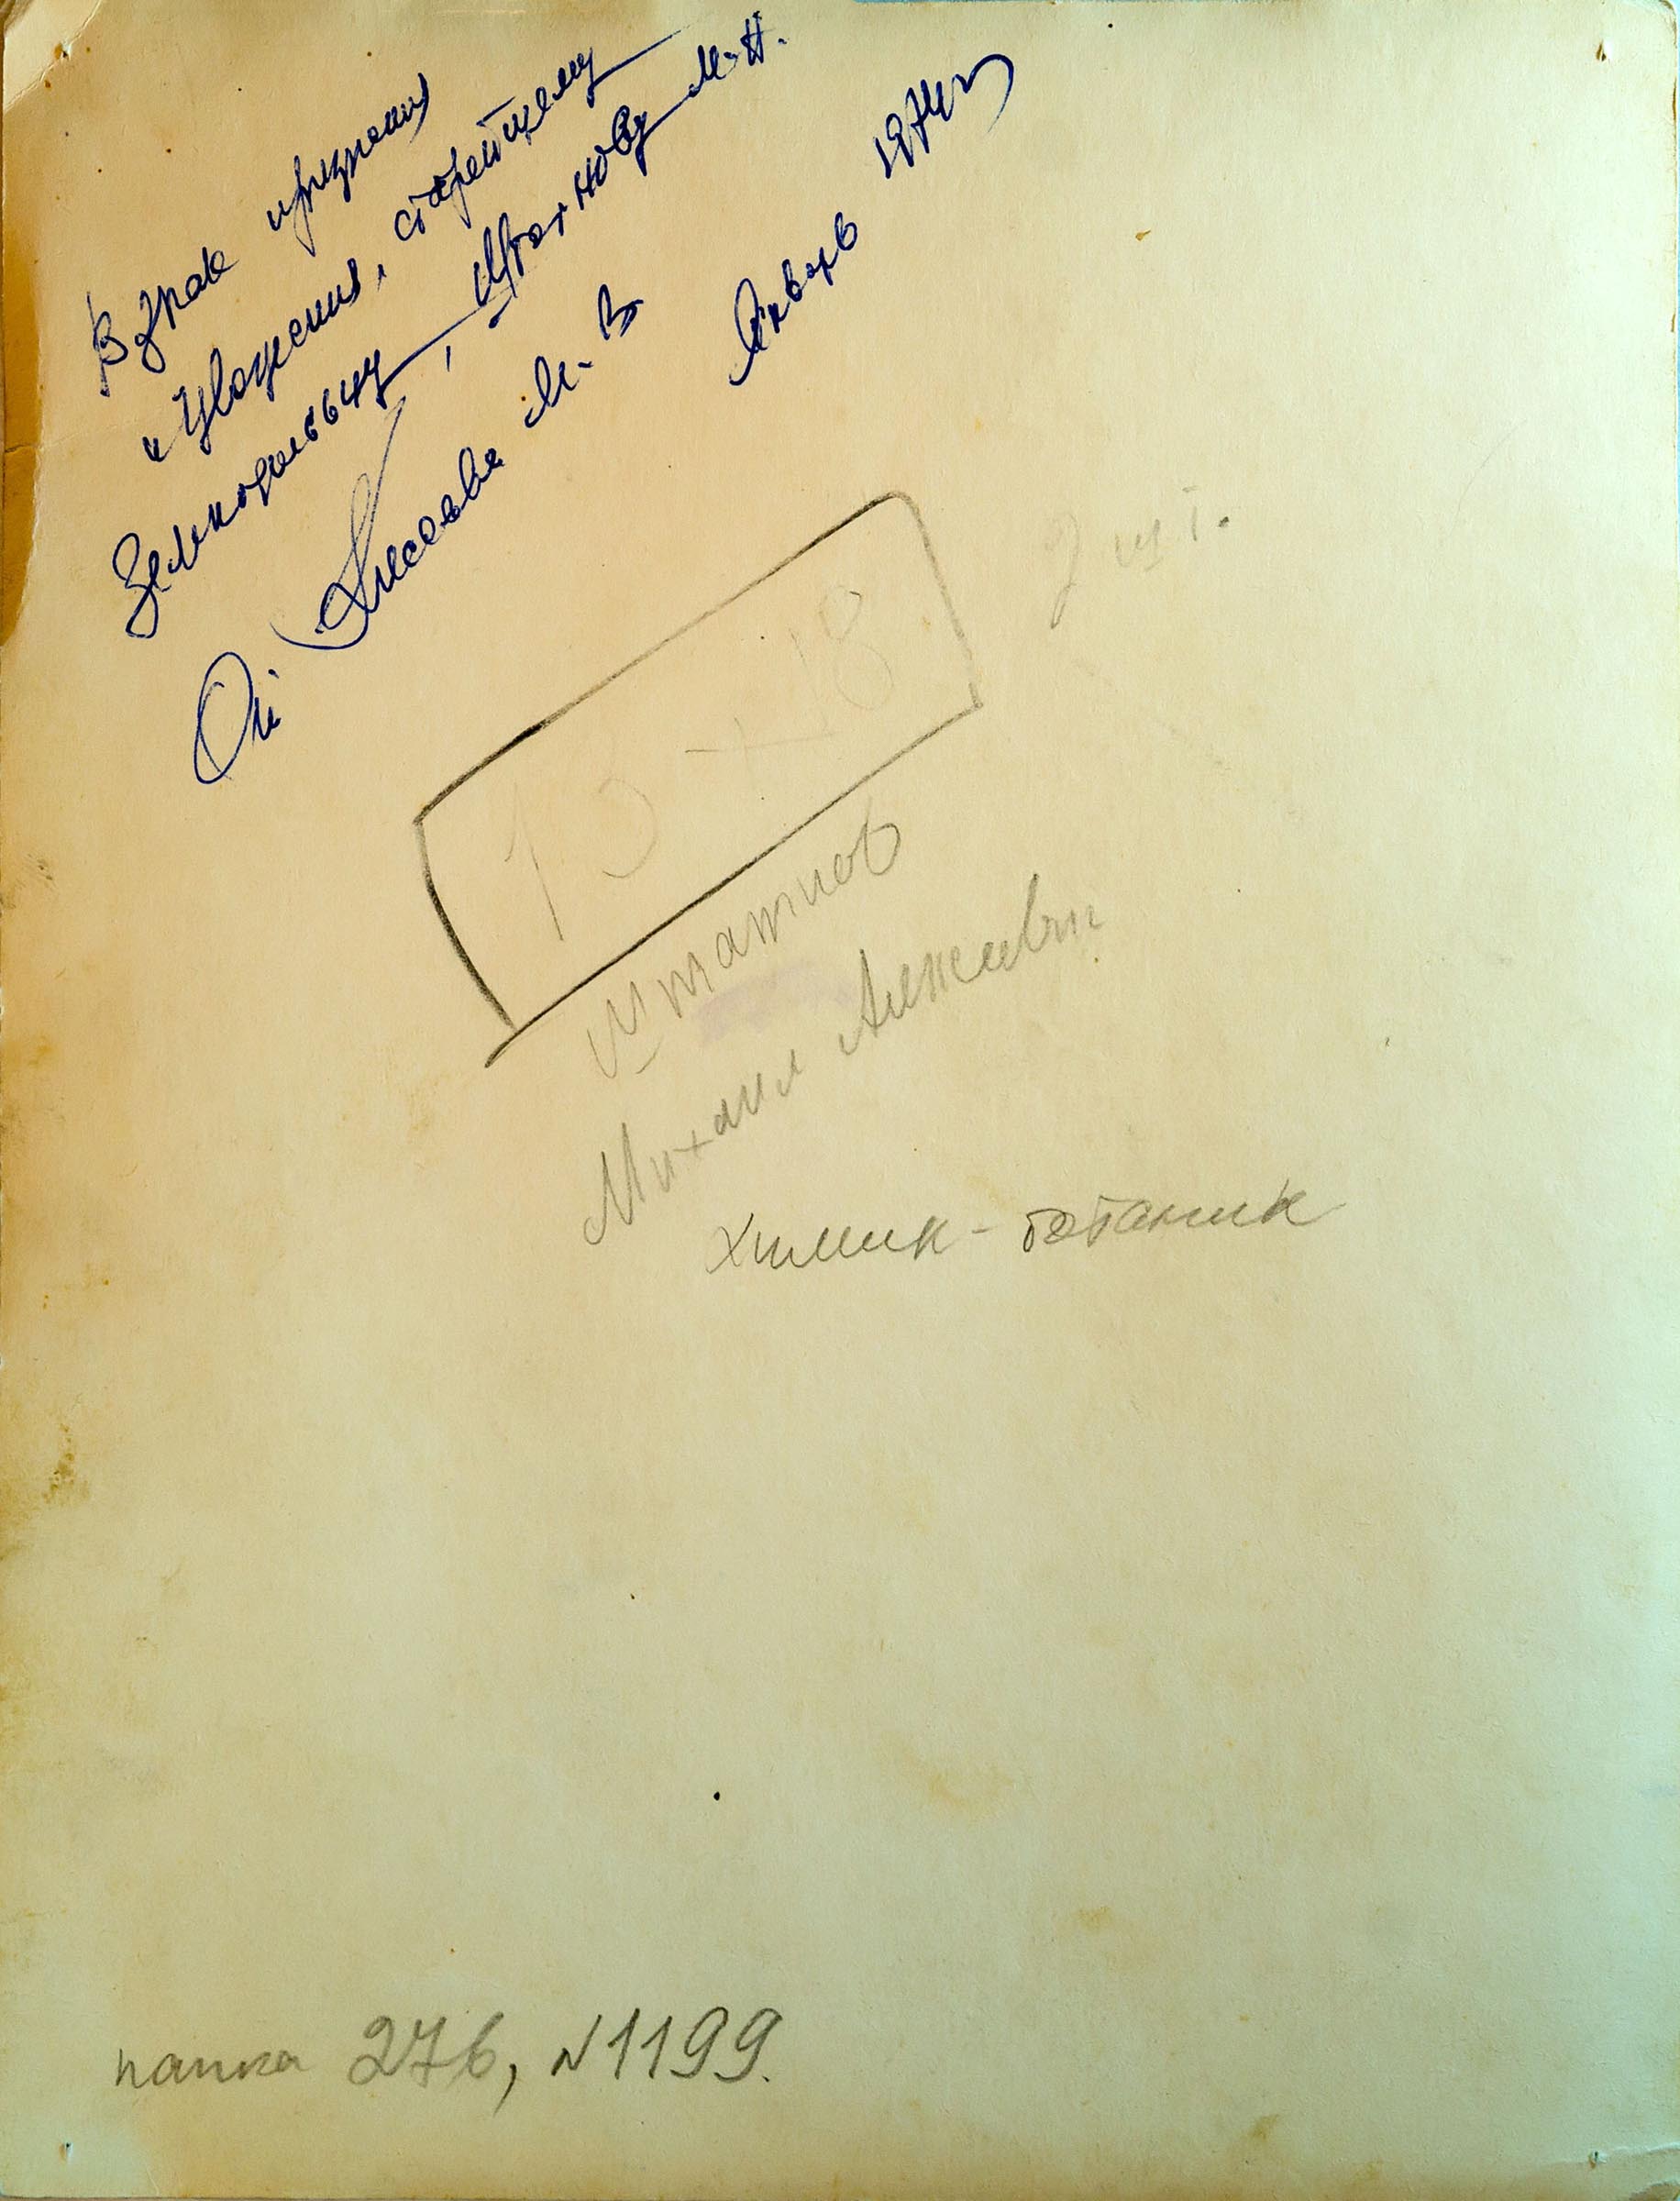 В знак признания
и Уважения, старейшему
Земнодольцу, М. Н.
От Алексеева М. В
Январь 1974г
2 шт.
13 × 18
Штатнов
Михаил Алексеевич
химик-ботаник
папка 276, N1199.